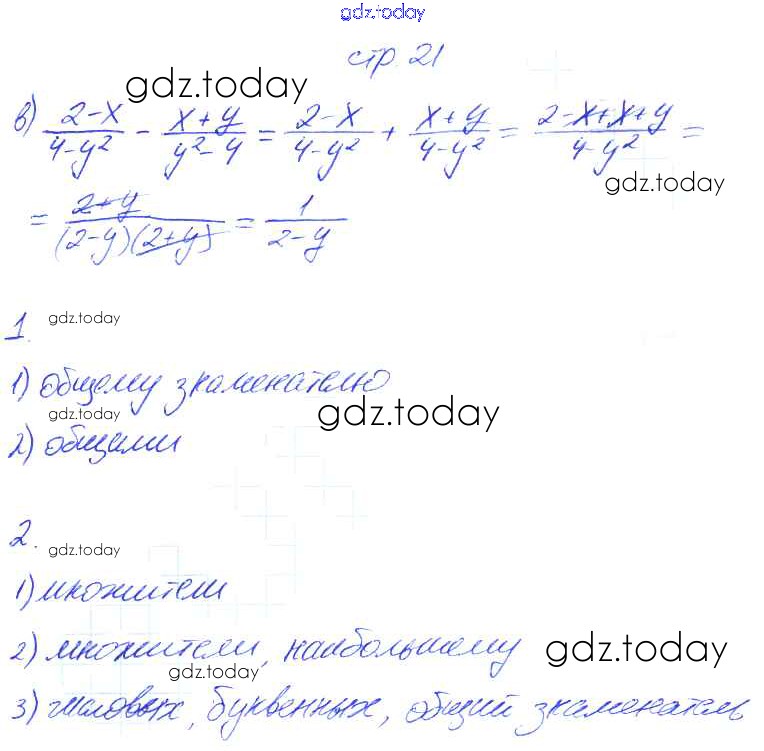 gdz.today
стр. 21
gdz.today
в) \frac{2-x}{4-y^2} - \frac{x+y}{y^2-4} = \frac{2-x}{4-y^2} + \frac{x+y}{4-y^2} = \frac{2-x+x+y}{4-y^2} =
gdz.today
= \frac{2+y}{(2-y)(2+y)} = \frac{1}{2-y}
1. gdz.today
1) общему знаменателю
gdz.today gdz.today
2) общими
2. gdz.today
1) множители
2) множители, наибольшему gdz.today
gdz.today
3) числовых, буквенных, общий знаменатель